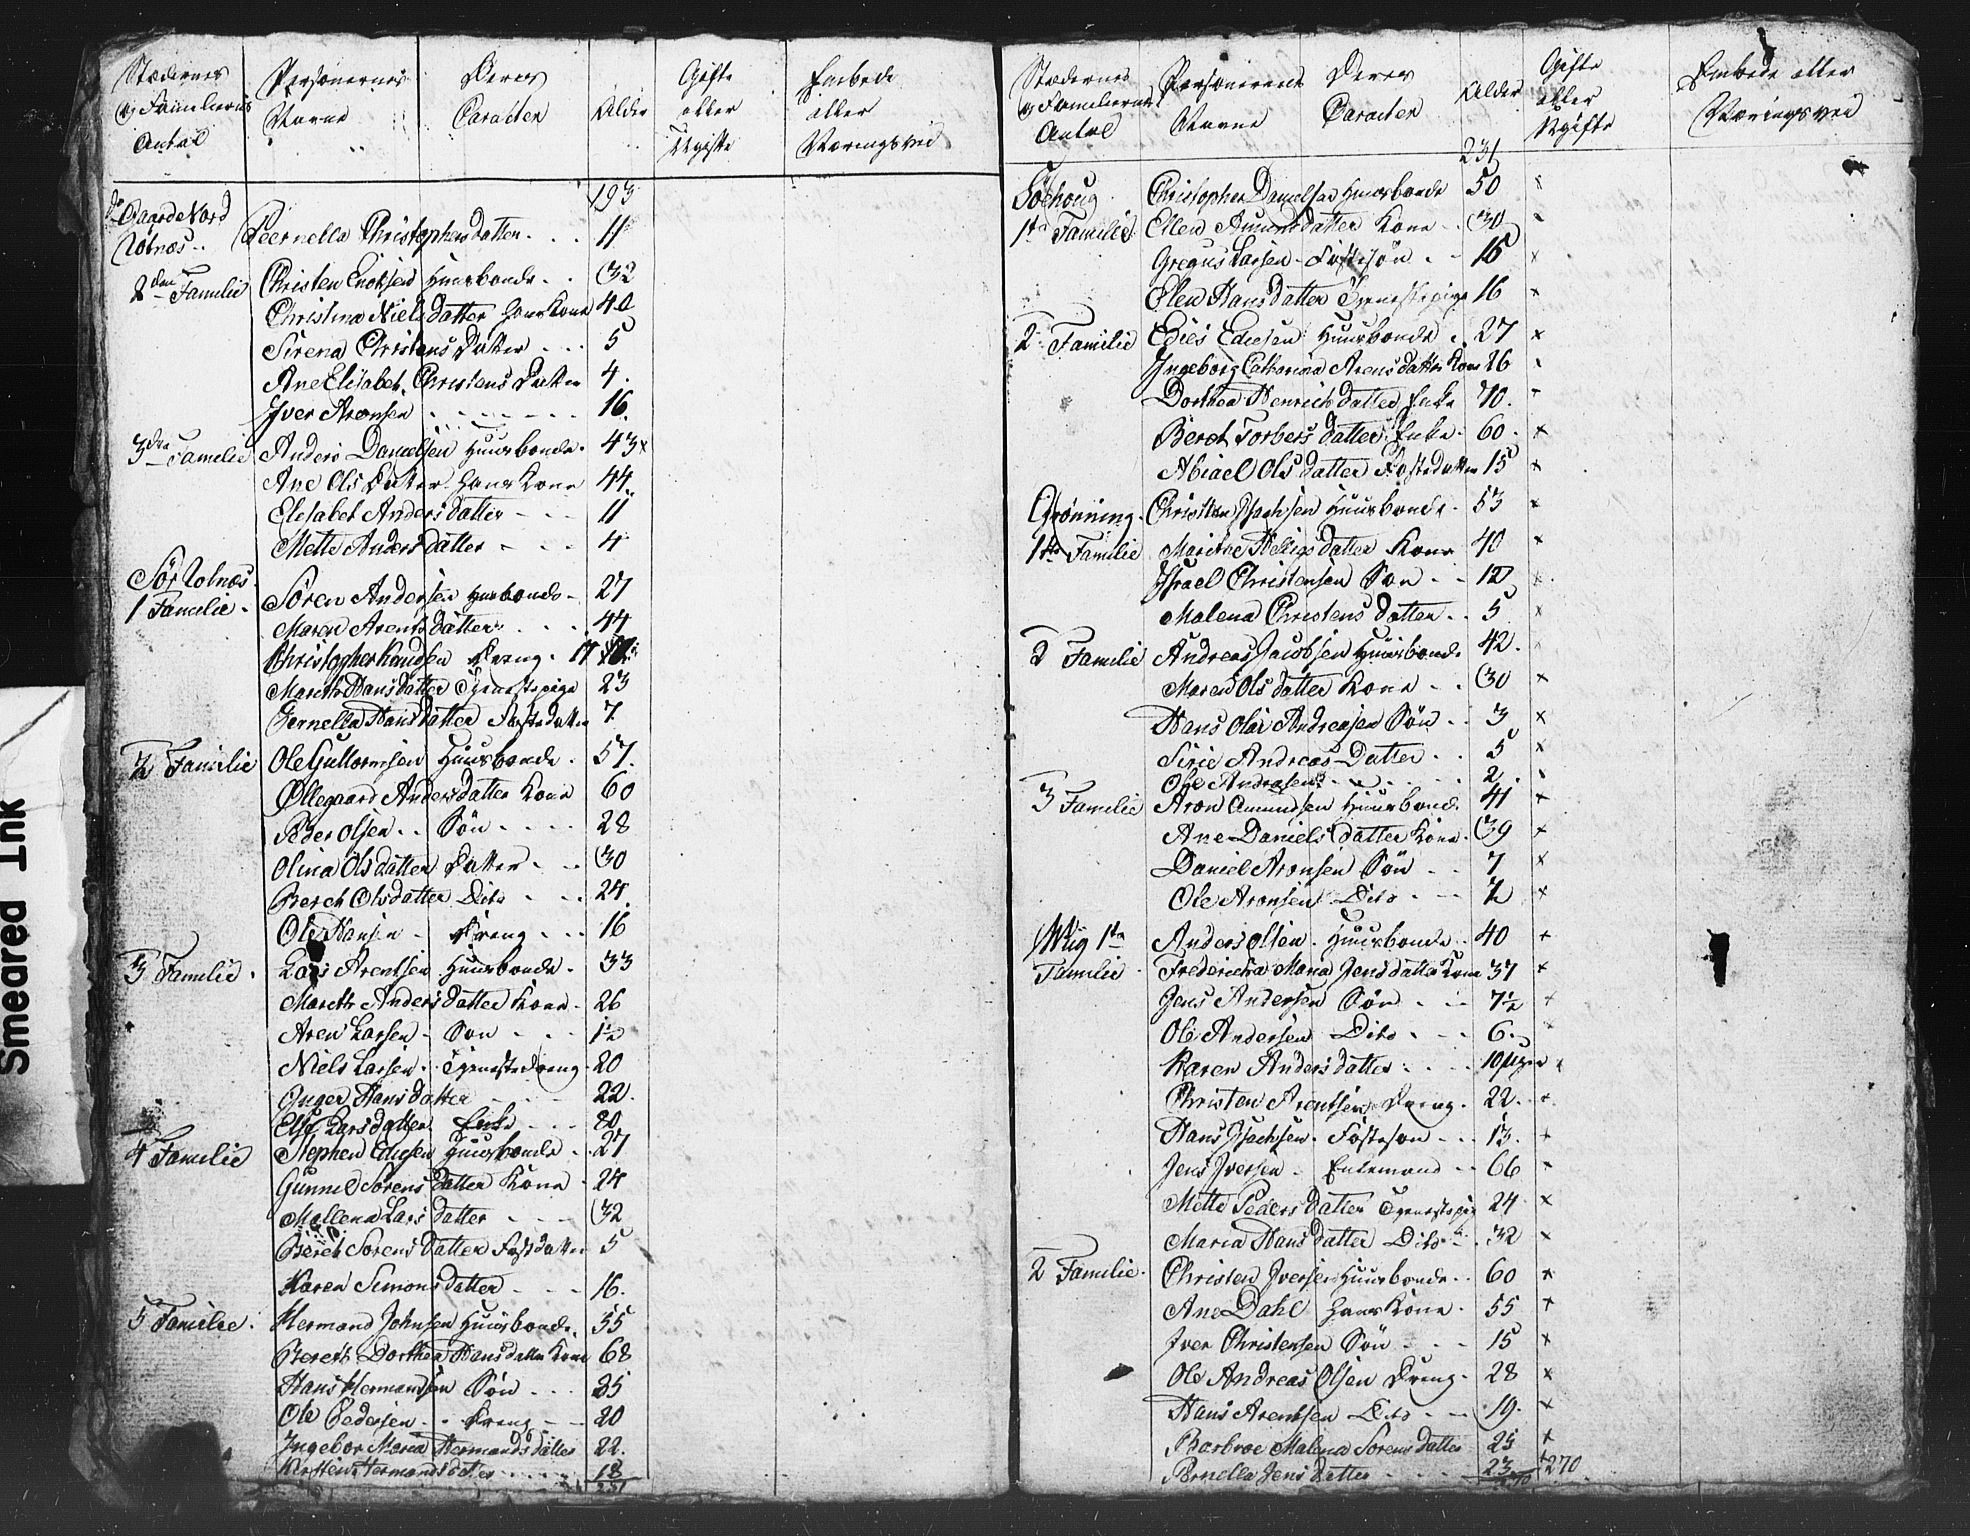 Stædernes og Familiernes Antal | Personernes Navne | Deres Caracter | Alder | Gifte eller Ugifte | Embede eller Næringsvei
193
do Gaarde Nord
Utnæs Peernella Christophersdatter 11
2den Familie Christen Enoksen Huusbonde 32
Christina Nielsdatter Hans Kone 40
Sirena Christens Datter 5
Ane Elisabet Christens Datter 4
Iver Aronsen 16
3die Familie Anders Danielsen Huusbonde 43 x
Ane Ols Datter Hans Kone 44
Elisabet Anders datter 11
Mette Anders datter 4
Sør Utnæs
1 Familie Sören Andersen Husbonde 27
Maren Arents datter 44
Christopher Knudsen Dreng 17
Mareth Hans datter Tjenestepige 23
Pernella Hans datter Fostedatter 7
2 Familie Ole Guttormsen Huusbonde 57
Øllegaard Anders datter Kone 60
Peder Olsen Sön 28
Olina Ols datter Datter 30
Bereth Olsdatter Dito 24
Ole Hansen Dreng 16
3 Familie Lars Arentsen Huusbonde 33
Mareth Anders datter Kone 26
Aren Larsen Son 1½
Niels Larsen Tjenestedreng 20
Inger Hans datter 22
Else Lars datter Enke 80
4 Familie Stephen Ediesen Huusbonde 27
Gunnel Sörens datter Kone 24
Mallena Lars datter 32
Beret Sorens datter Fostdatter 5
Karen Simons datter 16
5 Familie Hermand Johnsen Huusbonde 55
Bereth Dorthea Hans datter Kone 68
Hans Hermandsen Sön 25
Ole Pedersen Dreng 20
Ingebor Maria Hermands datter 22
Kirsten Hermands datter 18
231
Stædernes og Familiernes Antal | Personernes Navne | Deres Caracter | Alder | Gifte eller Ugifte | Embede eller Næringsvei
231
Christopher Danielsen Huusbonde 50 x
1te Familie Ellen Amunds datter Kone 30
Gregus Larsen Fostesön 15 x
Elen Hans datter Tjenestepige 16 x
2 Familie Edies Ediesen Huusbonde 27 x
Ingeborg Catharina Arens datter Kone 26
Dorthea Henrichs datter Enke 70
Beret Torbers datter Enke 60 x
Abiael Ols datter Fostedatter 15 x
Grönning Christian Isachsen Huusbonde 53 x
1te Familie Maritæ Helies datter Kone 40 x
Israel Christensen Son 12 x
Malena Christens datter 5 x
2 Familie Andreas Jacobsen Huusbonde 42
Maren Ols datter Kone 30 x
Hans Olai Andreasen Sön 3 x
Sirie Andreas Datter 5 x
Ole Andreasen 2
3 Familie Aron Amundsen Huusbonde 41 x
Ane Daniels datter Kone 39 x
Daniel Aronsen Sön 7 x
Ole Aronsen Dito ½ x
Wiig 1te Anders Olsen Huusbonde 40 x
Familie Fredericka Maria Jens datter Kone 37 x
Jens Andersen Sön 7½ x
Ole Andersen Dito 6 x
Karen Anders datter 10 Uger x
Christen Arentsen Dreng 22 x
Hans Isachsen Fosteson 13 x
Jens Iversen Enkemand 66 x
Mette Peders datter Tjenestepig 24 x
Maria Hans datter Dito 32 x
2 Familie Christen Iversen Huusbonde 60 x
Ane Dahl Hans Kone 55 x
Iver Christensen Sön 15 x
Ole Andreas Olsen Dreng 28 x
Hans Arentsen Dito 19 x
Barbroe Malena Sörens datter 25 x
Pernella Jens datter 23 x 270
270
Smeared Ink